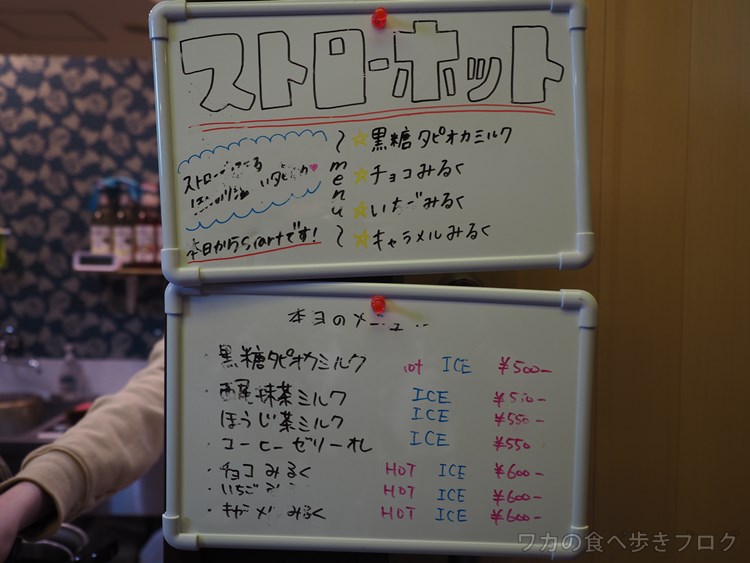 ストローホット
~menu~
☆黒糖タピオカミルク
☆チョコみるく
☆いちごみるく
☆キャラメルみるく
ストロー
本日からstartです!
本日のメニュー
・黒糖タピオカミルク HOT ICE ¥500-
・西尾抹茶ミルク ICE ¥510-
・ほうじ茶ミルク ICE ¥550-
・コーヒーゼリーオレ ICE ¥550
・チョコみるく HOT ICE ¥600-
・いちご HOT ICE ¥600-
・キャラメルみるく HOT ICE ¥600-
ワカの食べ歩きブログ